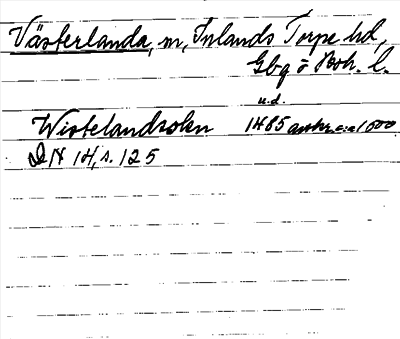 Västerlanda, sn, Inlands Torpe hd,
Gbg o Boh. l.
u.d.
Wistelandzokn 1485 avskr. ca 1500
DN 14, s. 125